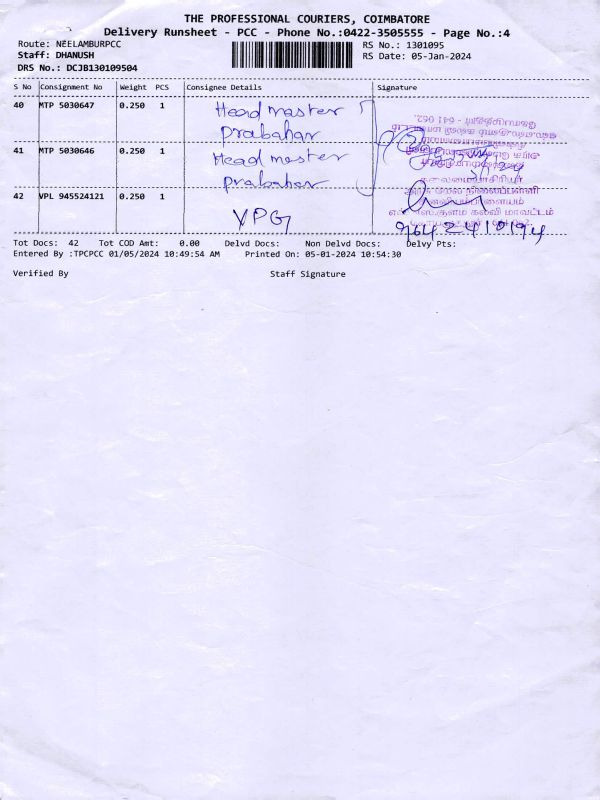 THE PROFESSIONAL COURIERS, COIMBATORE
Delivery Runsheet - PCC - Phone No.:0422-3505555 - Page No.:4
Route: NEELAMBURPCC
RS No.: 1301095
Staff: DHANUSH
RS Date: 05-Jan-2024
DRS No.: DCJB130109504
S No Consignment No Weight PCS Consignee Details Signature
40 MTP 5030647 0.250 1 Head master
prabahar
41 MTP 5030646 0.250 1 Head master
prabahar
42 VPL 945524121 0.250 1
VPG
Tot Docs: 42 Tot COD Amt: 0.00 Delvd Docs: Non Delvd Docs: Delvy Pts:
Entered By :TPCPCC 01/05/2024 10:49:54 AM Printed On: 05-01-2024 10:54:30
Verified By Staff Signature